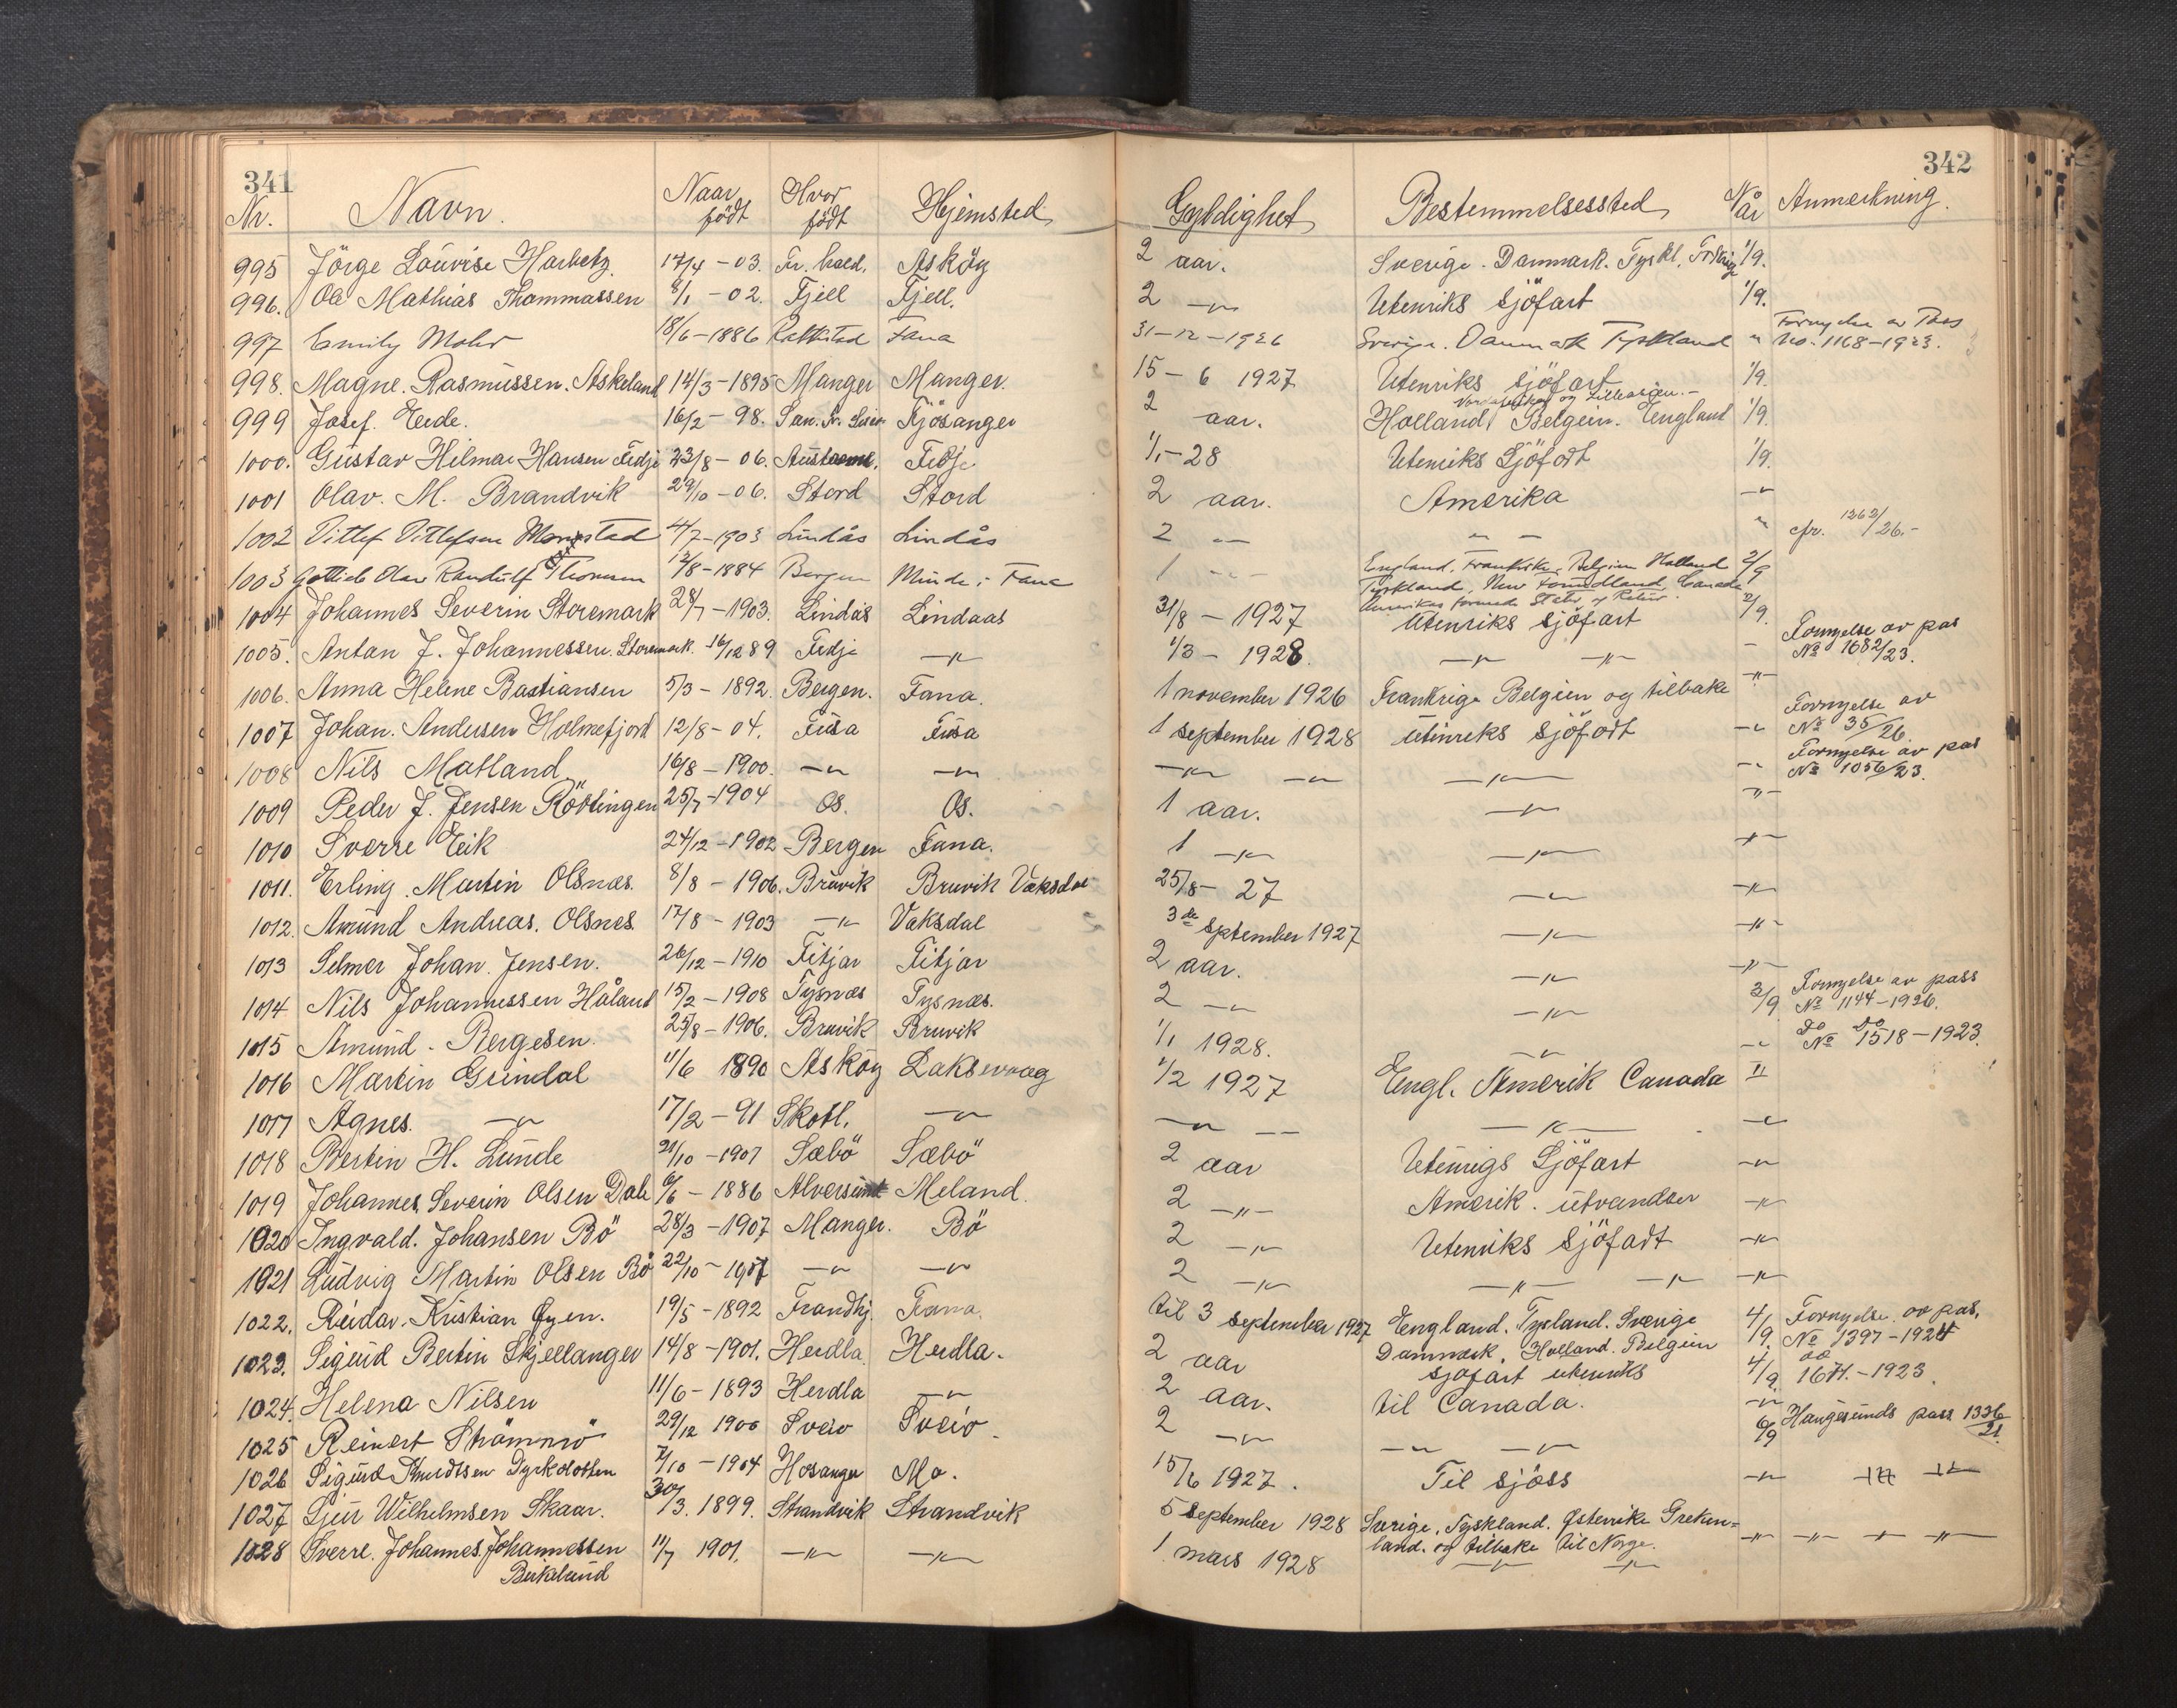 341
Nr. Navn. Naar født Hvor født Hjemsted
995 Jörge Louise Harbetz 17/4 - 03. Fr. hald. Asköy
996. Ole Mathias Thommassen 8/1 - 02. Fjell Fjell.
997 Emily Mohr 18/6 - 1886 Fana
998. Magne. Rasmussen. Askeland 14/3 - 1895 Manger Manger.
999 Josef. Eide. 16/2 - 98. Fjösanger
1000. Gustav Hilmar Hansen Fedje 23/8 - 06. Fedje
1001 Olav. M. Brandvik 29/10 - 06. Stord Stord
1002 Ditlef Ditlefsen Mongstad 4/7 - 1903 Lindås Lindås
1003 Gottlieb Olav Randulf Thorsen 12/8 - 1884 Bergen Minde i Fana
1004 Johannes Severin Storemark 28/7 - 1903. Lindås Lindaas
1005. Antan J. Johannessen. Storemark. 16/12 89 Fedje -"-
1006. Anna Helene Bastiansen 5/3 - 1892. Bergen. Fana.
1007 Johan. Andersen Holmefjord 12/8 - 04. Fusa Fusa
1008 Nils Matland 16/8 - 1900. -"- -"-
1009 Peder J. Jensen Rötingen 25/7 - 1904 Os. Os.
1010 Sverre Eik 24/12 - 1902 Bergen Fana.
1011. Erling. Martin Olsnæs. 8/8 - 1906. Bruvik Bruvik Vaksdal
1012. Amund Andreas. Olsnes. 17/8 - 1903 -"- Vaksdal
1013 Selmer Johan. Jensen. 26/12 - 1910 Fitjar Fitjar
1014 Nils Johannessen Håland 15/2 - 1908 Tysnæs Tysnæs.
1015 Amund - Bergesen. 25/8 - 1906. Bruvik Bruvik
1016 Martin Grindal 11/6 1890 Asköy Laksevaag
1017 Agnes. -"- 17/2 - 91 Skotl. -"-
1018 Bertin H. Lunde 21/10 - 1907 Sæbö Sæbö
1019 Johannes Severin Olsen Dale 6/6 - 1886 Alversund Meland.
1020 Ingvald. Johansen Bö 28/3 - 1907 Manger. Bö
1021 Ludvig Martin Olsen Bö 22/10 - 1907 -"- -"-
1022. Reidar. Kristian Øyen. 19/5 - 1892 Trondhj. Fana.
1023. Sigurd Bertin Skjellanger 14/8 - 1901. Herdla. Herdla.
1024. Helena Nilsen 11/6 - 1893 Herdla -"-
1025 Reinert Strömnö 29/12 1900 Sveio Sveio.
1026 Sigurd Knudtsen Dyrkolbotn 7/10 - 1904 Hosanger Mo.
1027 Sjur Wilhelmsen Skaar. 30/3. 1899. Strandvik Strandvik
1028 Sverre. Johannes. Johannessen 11/7 1901. -"- -"-
Birkelund
342
Gyldighet Bestemmelsessted Når Anmerkning.
2 aar. Sverige. Danmark. Tyskl. Frkrige 1/9.
2 -"- Utenriks sjöfart 1/9.
31-12-1926 Sverige. Danmark Tyskland " Fornyelse av Pass No. 1168-1923.
15 - 6 1927 Utenriks sjöfart 1/9.
2 aar. Holland, Belgien. England 1/9.
1/1 - 28 Utenriks Sjöfart 1/9.
2 aar. Amerika -"-
2 -"- -"- -"- " cfr. 1262/26.-
1 -"- England. Frankrike, Belgien Holland 2/9
Tyskland, New Foundland, Canada
Amerikas forenede Stater og Retur.
31/8 - 1927 Utenriks sjöfart 2/9.
1/3 - 1928. -"- -"- - Fornyelse av pas No 1682/23.
1 november 1926 Frankrige Belgien og tilbake -"-
1 september 1928 Utenriks sjöfart -"- Fornyelse av No 35/26
-"- -"- -"- -"- Fornyelse av pas No 1056/23.
1 aar. -"- -"-
1 -"- -"- -"-
25/8 - 27 -"- -"-
3de september 1927 -"- -"-
2 aar. -"- -"-
2 -"- -"- 3/9 Fornyelse av pass No 1144-1926.
1/1 1928. -"- -"- Do Do No 1518-1923.
1/2 1927 Engl. Amerik Canada "
-"- -- -"- -"-
2 aar Utenrigs Sjöfart -"-
2 -"- Amerik. utvandrer -"-
2 -"- Utenriks sjöfart -"-
2 -"- -"- -"- -"-
til 3 september 1927 England. Tyskland. Sverige 4/9. Fornyelse av pas. No 1397-1924
Danmark. Holland. Belgien
2 aar sjøfart utenriks 4/9. do 1671.-1923.
2 aar. til Canada. -"-
2 -"- -"- -"- 6/9 Haugesunds pass 1336/21.
15/6 1927. Til sjöss -"- -"- -"-
5 september 1928 Sverige, Tyskland. Østerrike Greken=
land. og tilbake til Norge. -"- -"- -"- -"-
1 mars 1928 -"- -"-